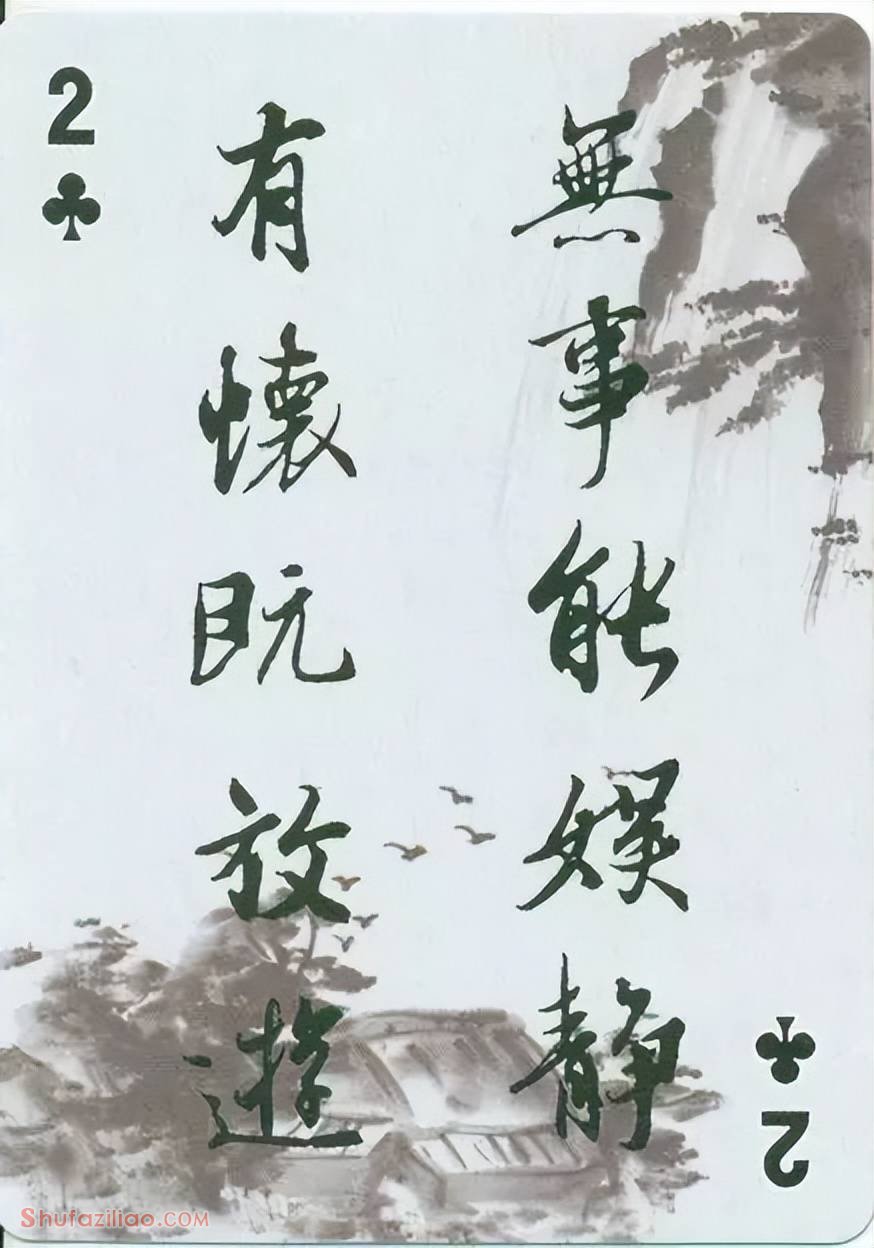 2
無事能娱静
有懷既放遊
2
Shufaziliao.com